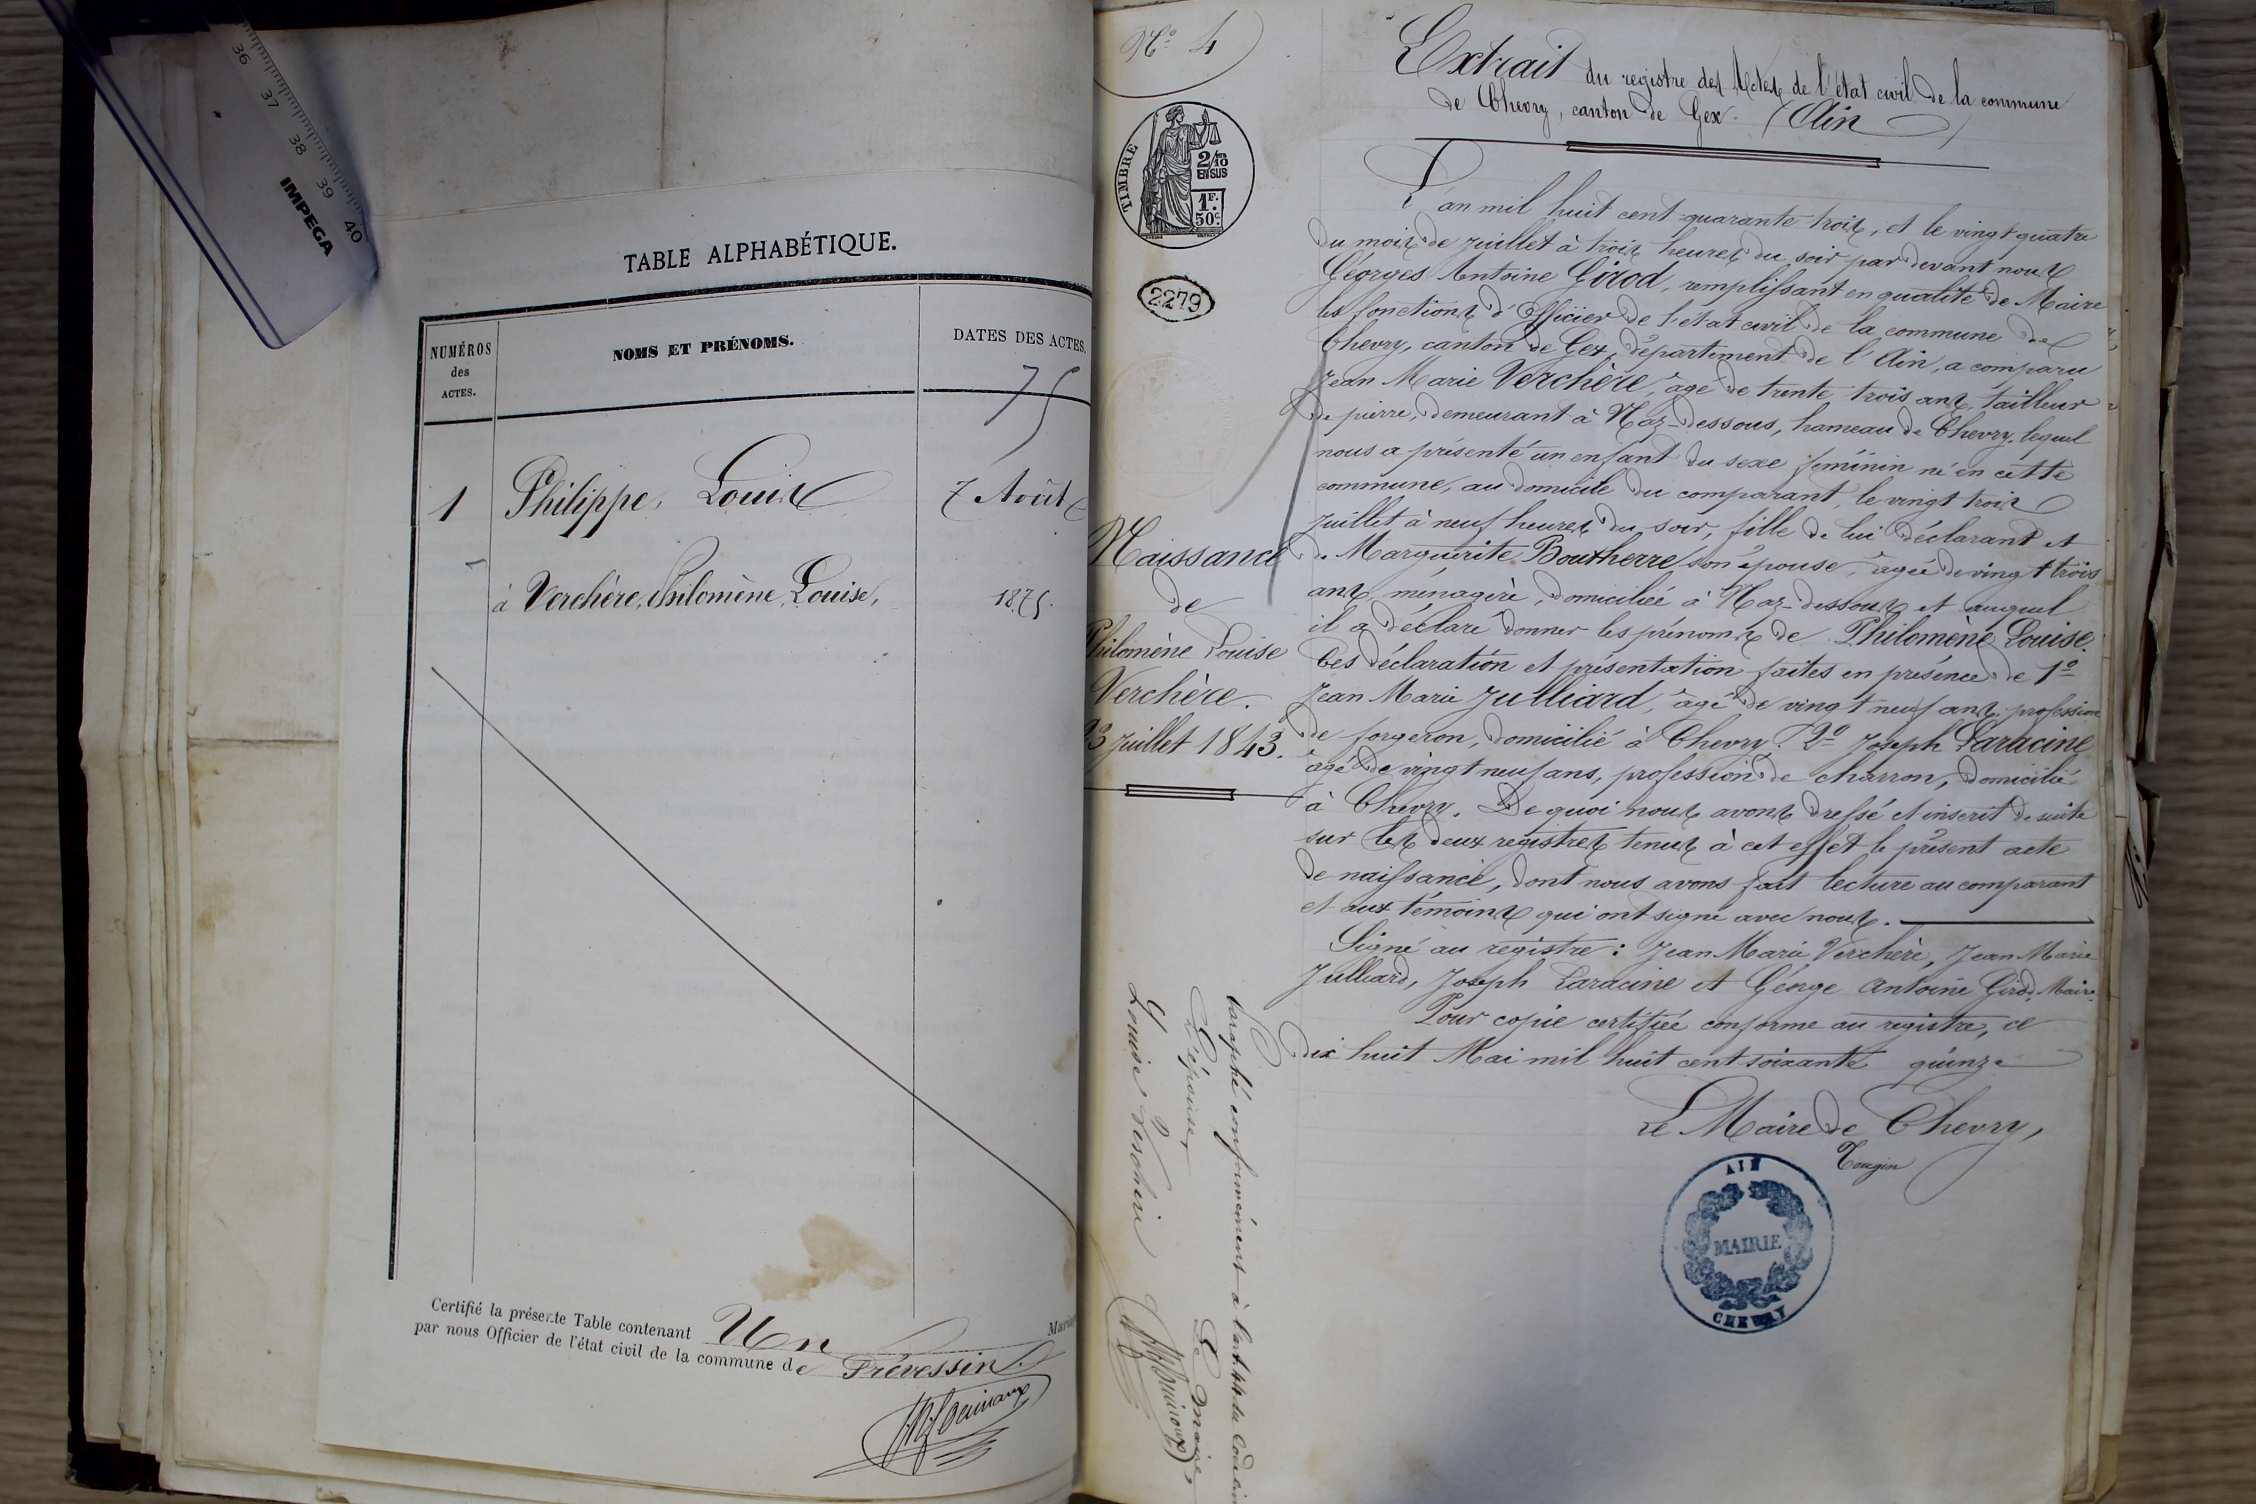 36 37 38 39 40
IMPEGA
TABLE ALPHABÉTIQUE.
NUMÉROS
des
ACTES.
NOMS ET PRÉNOMS.
DATES DES ACTES.
75
1 Philippe, Louis 7 Août
à Verchère, Philomène Louise, 1875.
Certifié la présente Table contenant Un Maria
par nous Officier de l'état civil de la commune de Prévessin.
No 4
TIMBRE
2/10
EN SUS
1F.
50c.
2279
Naissance
de
Philomène Louise
Verchère.
23 juillet 1843.
Extrait du registre des Actes de l'état civil de la commune
de Chevry, canton de Gex. (Ain)
L'an mil huit cent quarante trois, et le vingt quatre
du mois de juillet à trois heures du soir par devant nous
Géorges Antoine Girod, remplissant en qualité de Maire
les fonctions d'Officier de l'état civil de la commune de
Chevry, canton de Gex, département de l'Ain, a comparu
Jean Marie Verchère, âgé de trente trois ans, tailleur
de pierre, demeurant à Naz-dessous, hameau de Chevry, lequel
nous a présenté un enfant du sexe féminin né en cette
commune, au domicile du comparant, le vingt trois
juillet à neuf heures du soir, fille de lui déclarant et
de Marguérite Boutherre son épouse, âgée de vingt trois
ans, ménagère, domiciliée à Naz-dessous et auquel
il a déclaré donner les prénoms de Philomène Louise.
Ces déclaration et présentation faites en présence de 1o
Jean Marie Julliard, âgé de vingt neuf ans, profession
de forgeron, domicilié à Chevry. 2o Joseph Laracine
âgé de vingt neuf ans, profession de charron, domicilié
à Chevry. De quoi nous avons dressé et inscrit de suite
sur les deux registres tenus à cet effet le présent acte
de naissance, dont nous avons fait lecture au comparant
et aux témoins qui ont signé avec nous.
Signé au registre : Jean Marie Verchère, Jean Marie
Julliard, Joseph Laracine et Géorge Antoine Girod, Maire.
Pour copie certifiée conforme au registre, ce
dix huit Mai mil huit cent soixante quinze
Le Maire de Chevry,
Tougin
AIN
MAIRIE
CHEVRY
Paraphé conformément à l'art. 44 du Code civil
L'épouse, Le Maire,
Louise Verchère